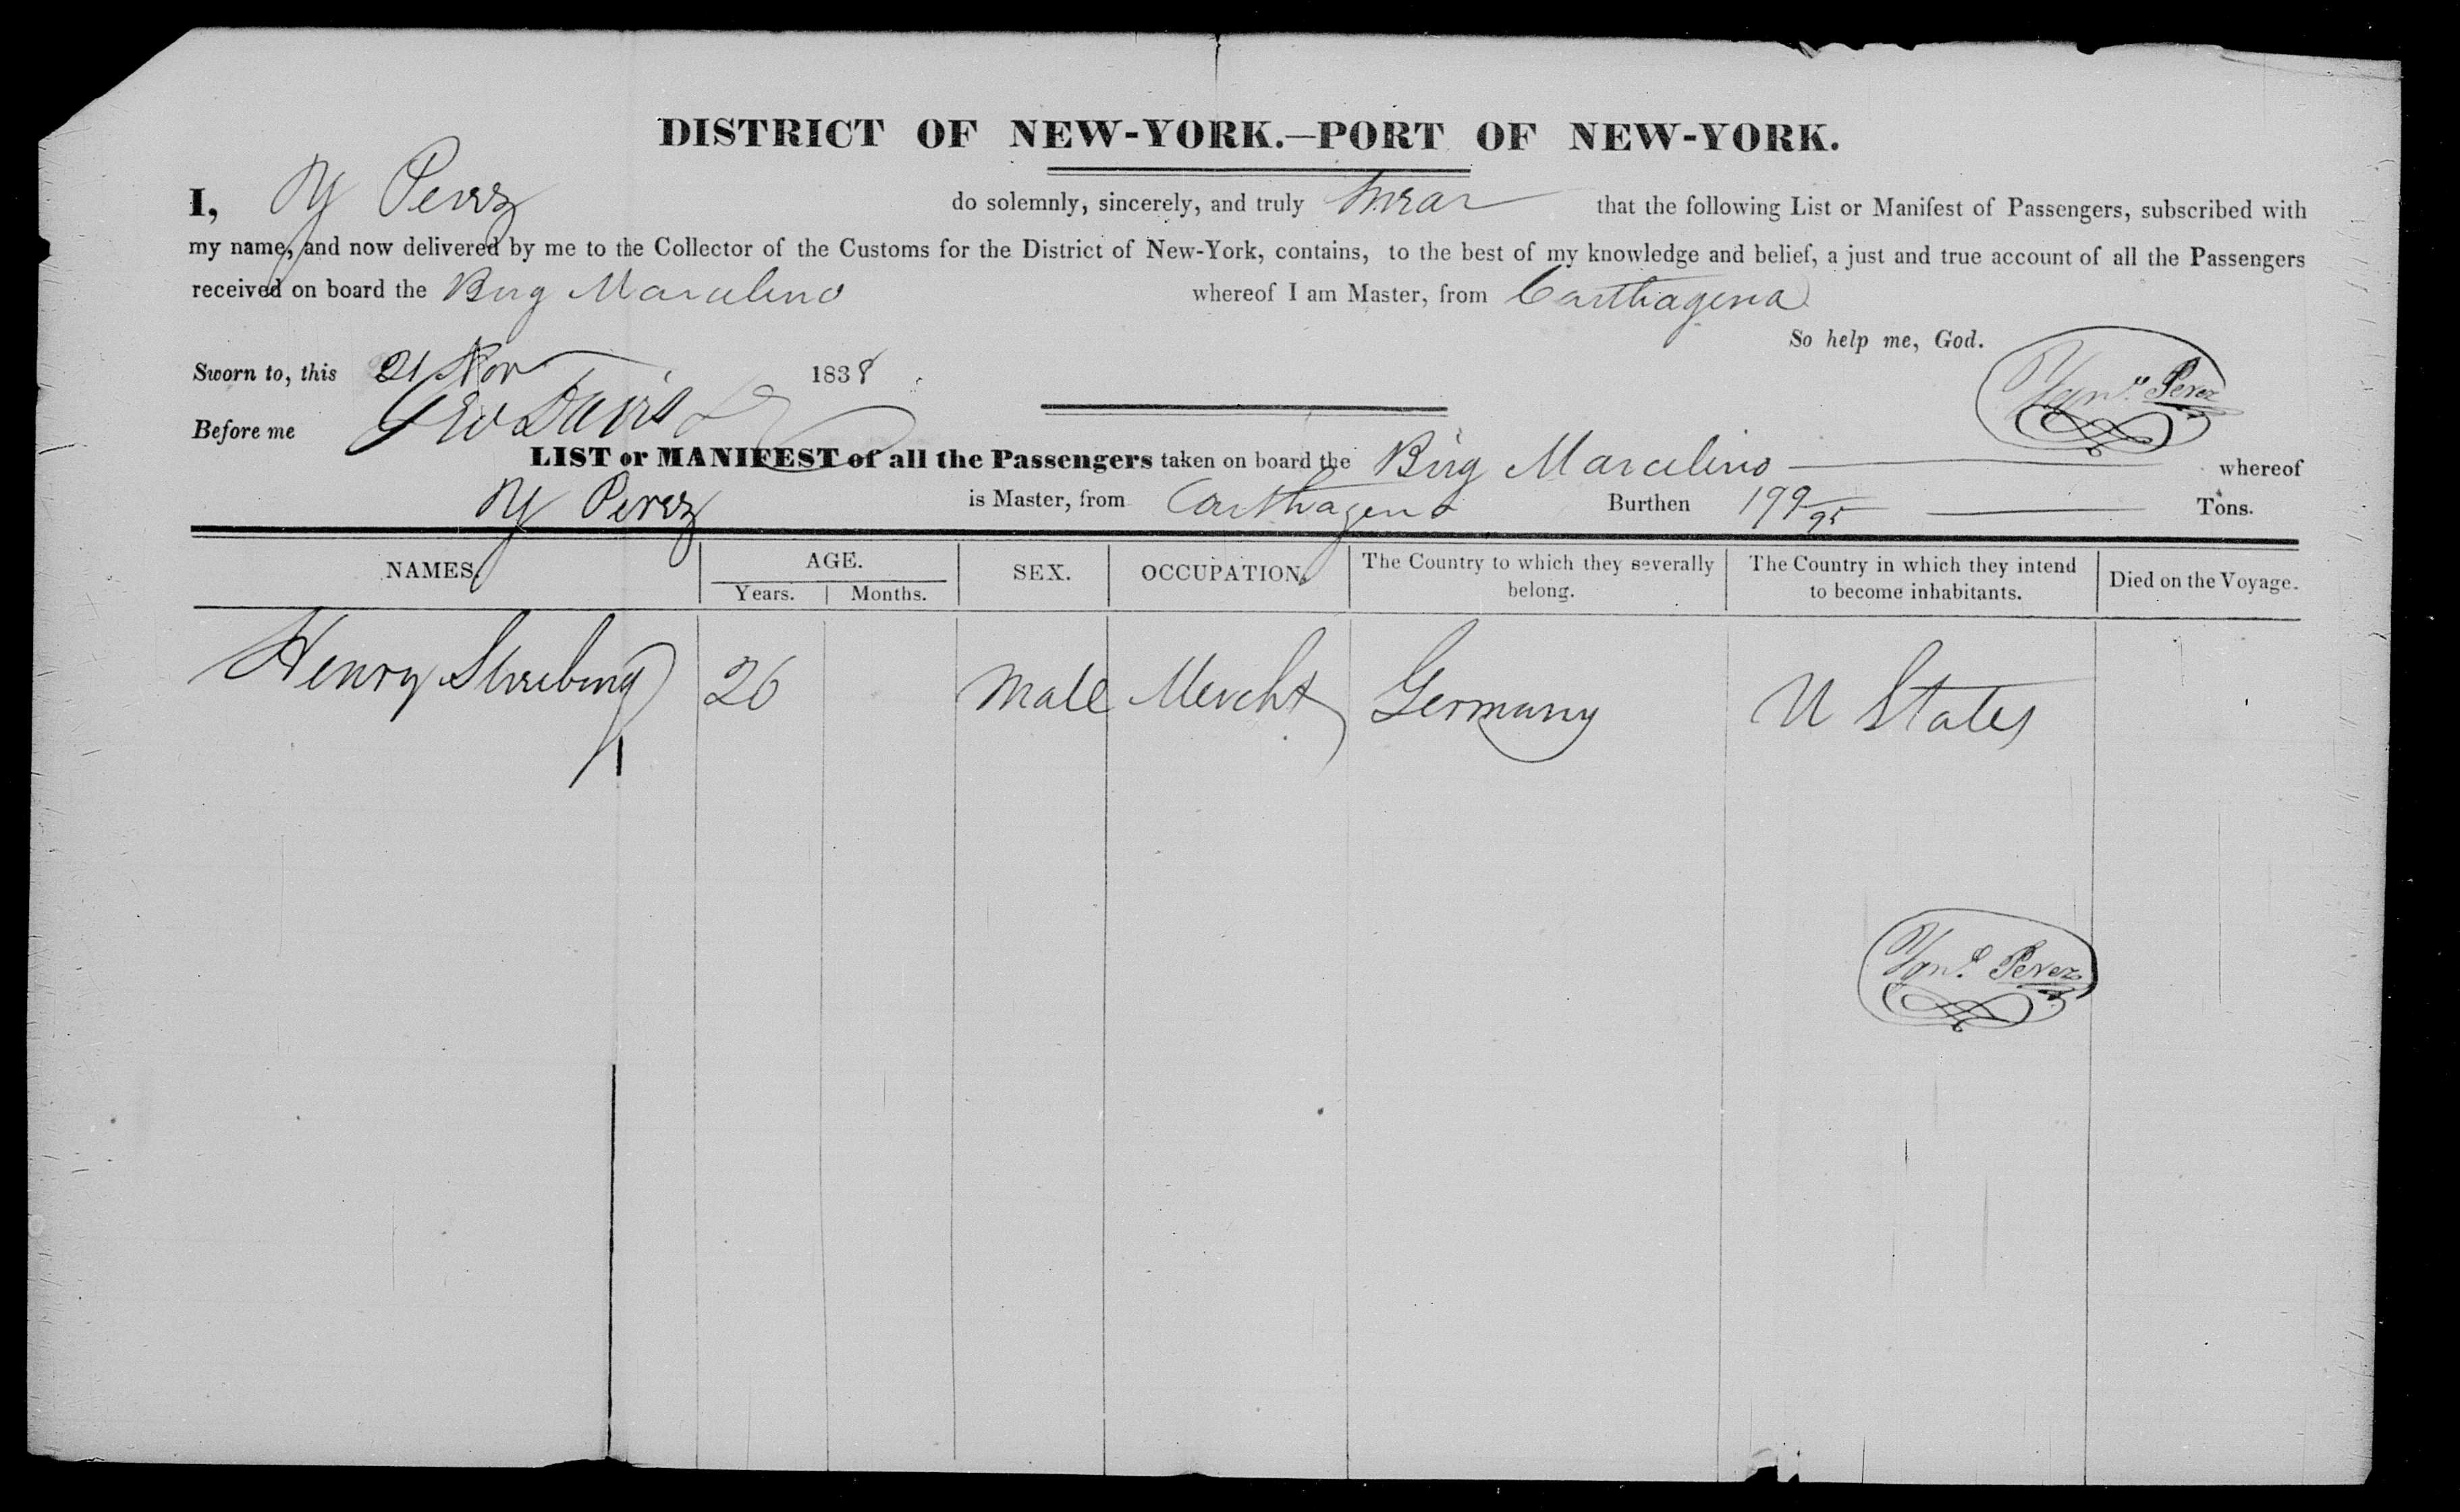 DISTRICT OF NEW-YORK.—PORT OF NEW-YORK.
I, Y Perez do solemnly, sincerely, and truly swear that the following List or Manifest of Passengers, subscribed with
my name, and now delivered by me to the Collector of the Customs for the District of New-York, contains, to the best of my knowledge and belief, a just and true account of all the Passengers
received on board the Brig Marcelino whereof I am Master, from Carthagena
So help me, God.
Sworn to, this 21 Nov 1838
Perez
Before me Geo Davis
LIST or MANIFEST of all the Passengers taken on board the Brig Marcelino whereof
Y Perez is Master, from Carthagena Burthen 199/95 Tons.
NAMES. AGE. SEX. OCCUPATION. The Country to which they severally belong. The Country in which they intend to become inhabitants. Died on the Voyage.
Years. Months.
Henry 26 Male Mercht Germany U States
Perez